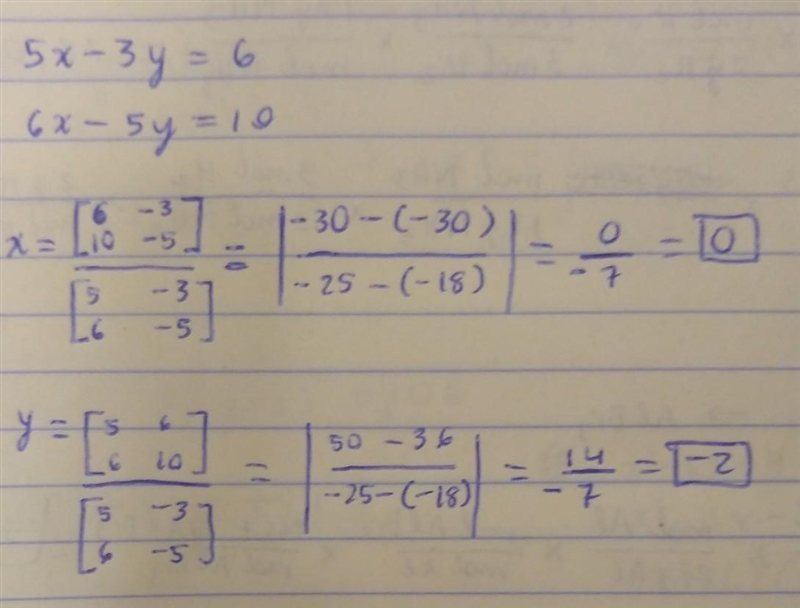 5x - 3y = 6
6x - 5y = 10
x = [6 -3
10 -5] / [5 -3
6 -5] = | -30 - (-30) / -25 - (-18) | = 0 / -7 = 0
y = [5 6
6 10] / [5 -3
6 -5] = | 50 - 36 / -25 - (-18) | = 14 / -7 = -2